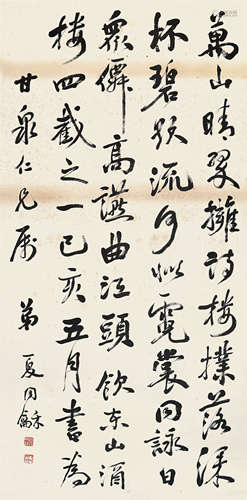 萬山晴翠擁詩樓撲落深
杯碧欲流何似霓裳同詠日
眾僊高讌曲江頭飲東山酒
樓四截之一己亥五月書為
甘泉仁兄屬 弟 夏同龢